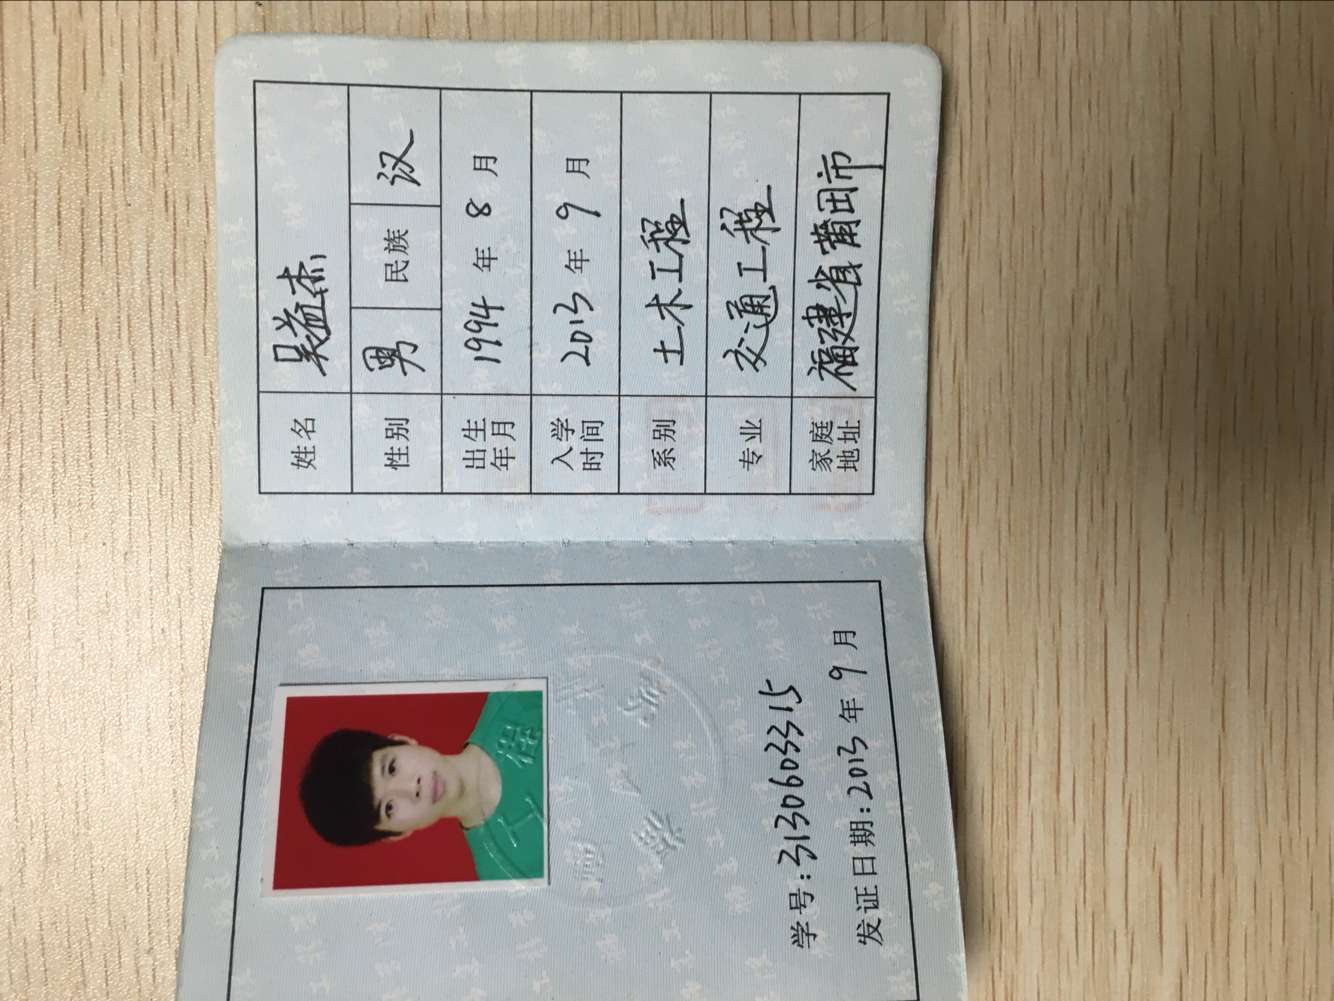 工程
学号:3130603315
发证日期:2013年9月
姓名 吴益杰
性别 男 民族 汉
出生年月 1994年8月
入学时间 2013年9月
系别 土木工程
专业 交通工程
家庭地址 福建省莆田市